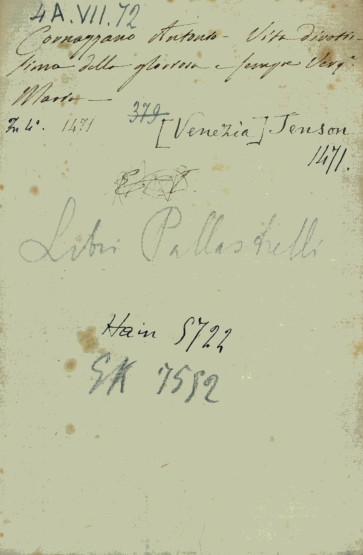 4A.VII.72
Cornazzano Antonio - Vita divotis-
sima della gloriosa e sempre Verg.e
Maria -
In 4°. 1471 379 [Venezia] Jenson
1471.
Libri Pallastrelli
Hain 5722
GK 7552